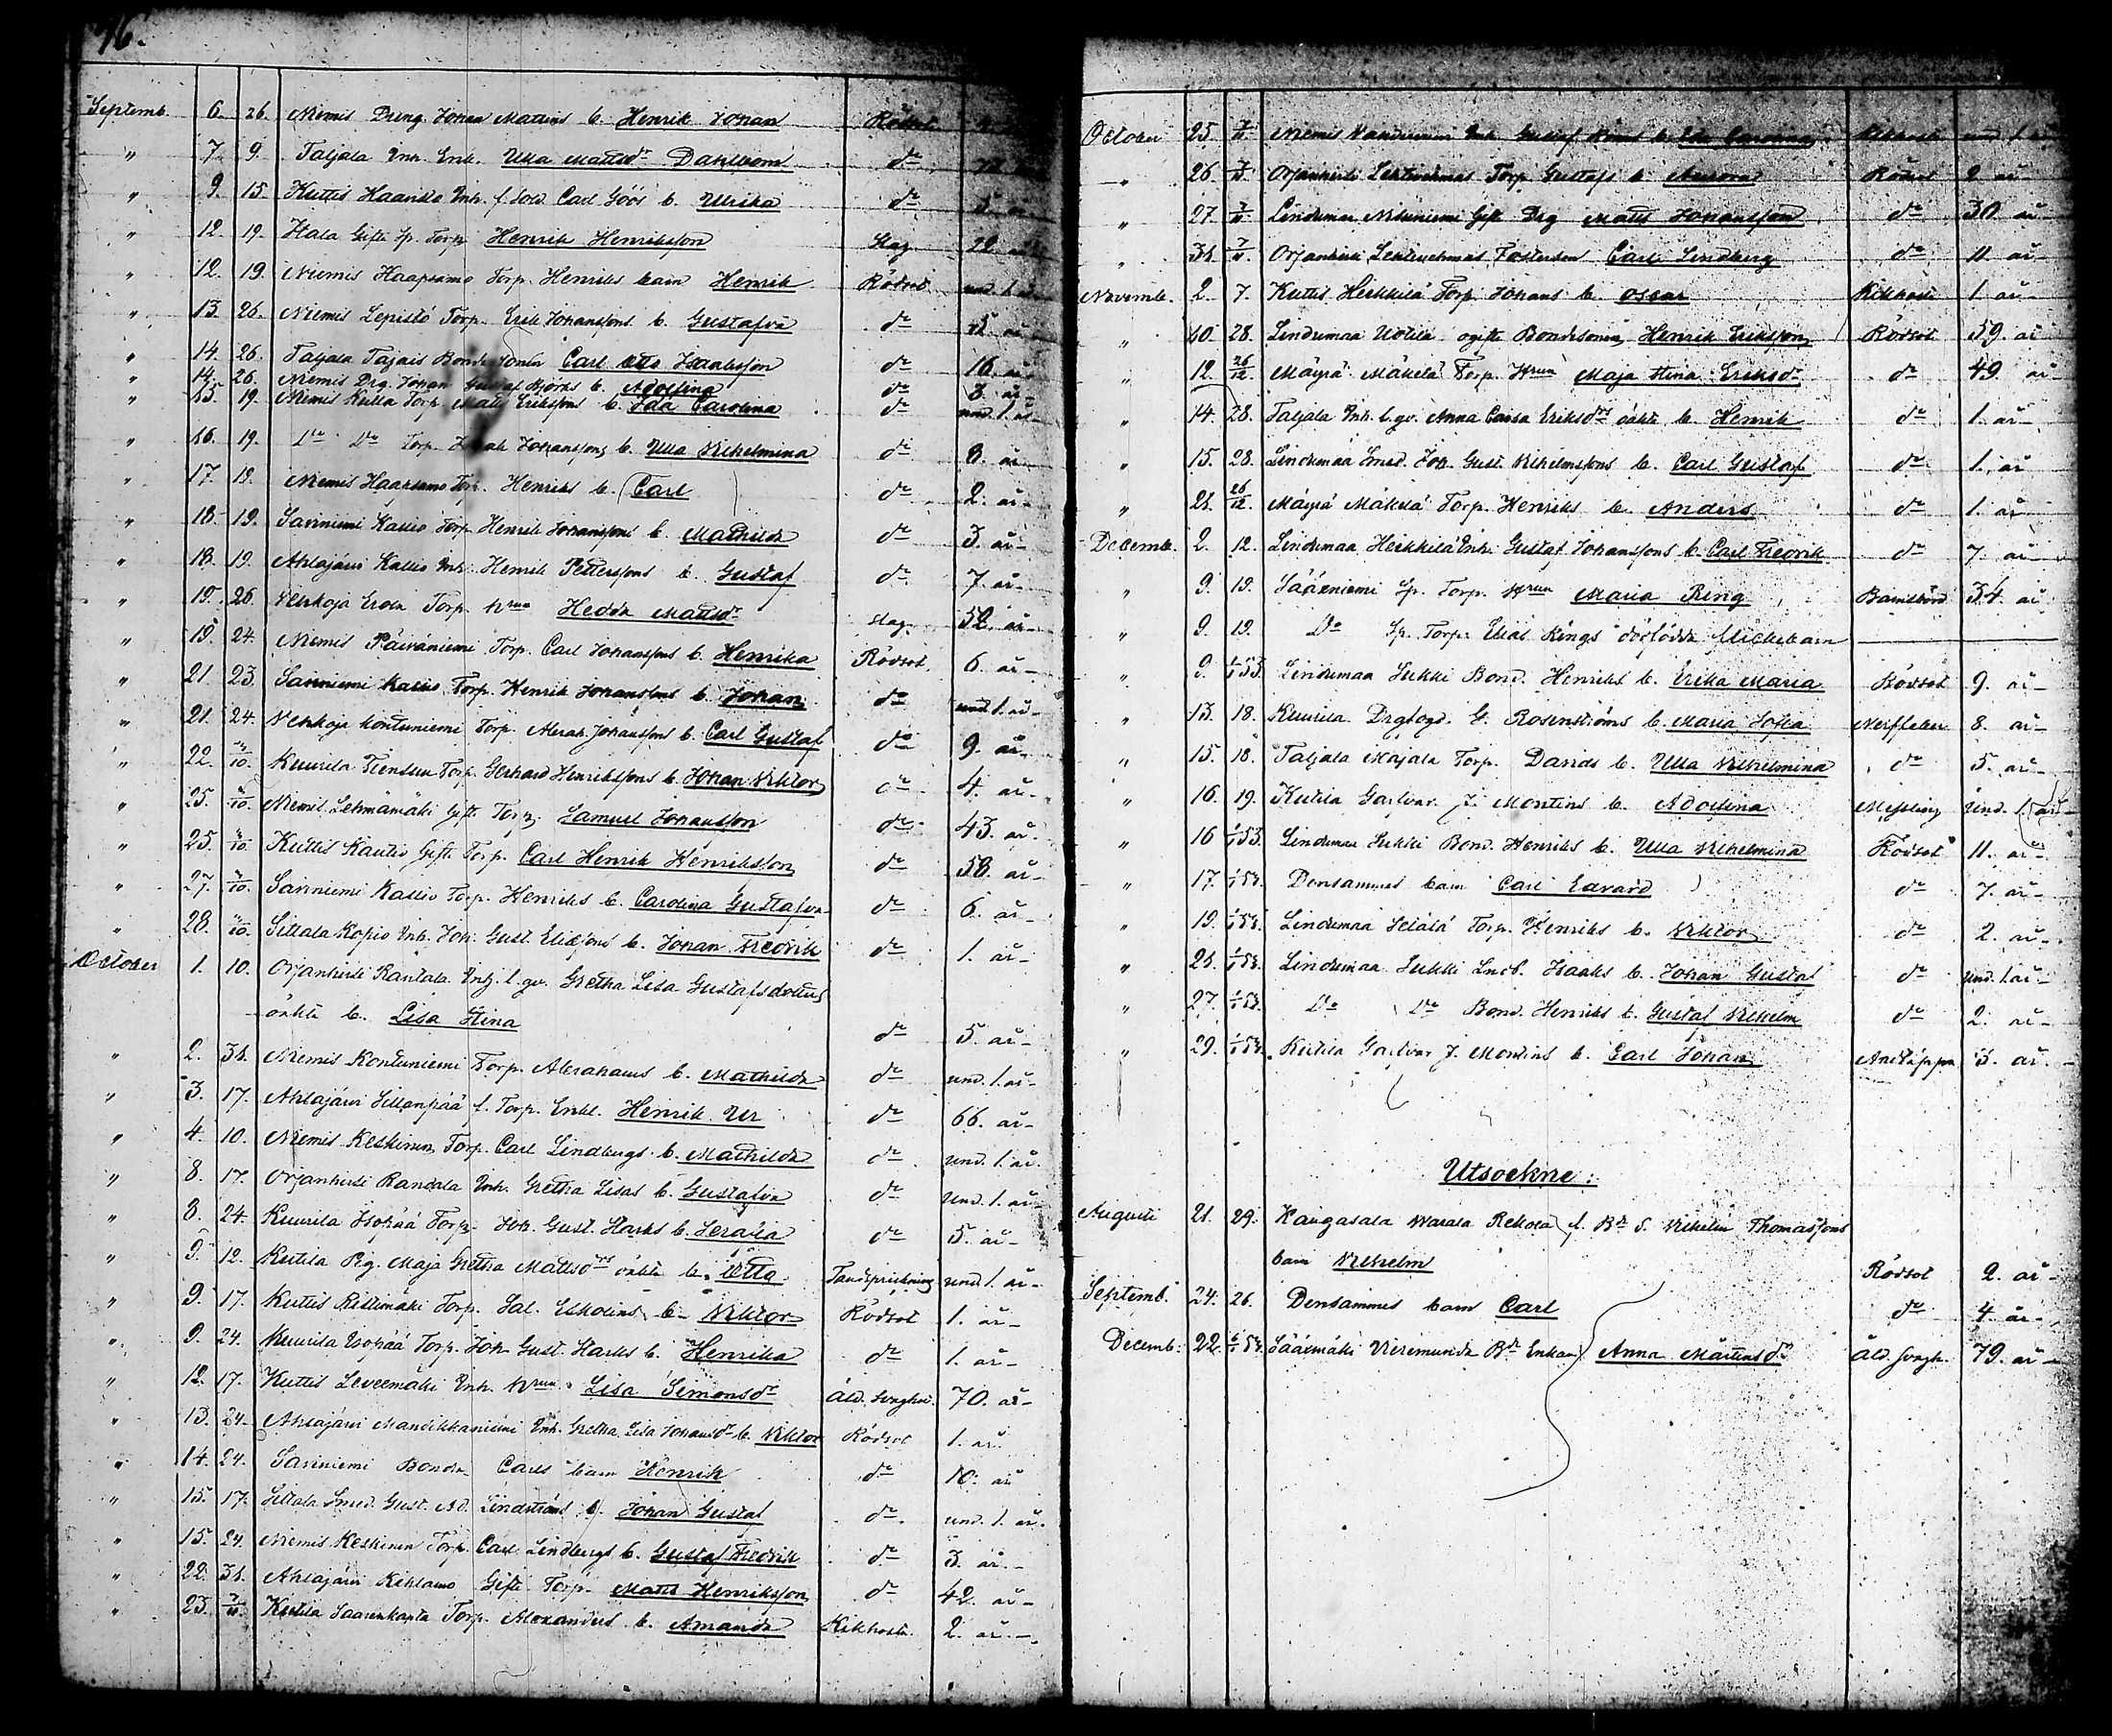 76.
Septemb. 6. 26. Niemis Dreng Johan Mattens b. Henrik Johan Rödsot
" 7. 9. Taljala Inh. Enk. Ulla Mattsdr Dahlbom do
" 9. 15. Kuttis Haanoko Inh. f. Sold. Carl Göös b. Ulrika do 5. år
" 12. 19. Itala Gifte Sp. Torp. Henrik Henriksson Slag 22. år
" 12. 19. Niemis Haapsamo Torp. Henriks barn Henrik Rödsot und. 1. år
" 13. 26. Niemis Lepistö Torp. Erik Johanssons b. Gustafva do år
" 14. 26. Taljala Tajais Bonde Sonen Carl Otto Isaaksson do 16. år
" 14. 26. Niemis Drg. Johan Gustaf Björks b. Adolfina do 3. år
" 15. 19. Niemis Kulla Torp. Matts Erikssons b. Ida Carolina do und. 1. år
" 16. 19. Do Do Torp. Isaak Johanssons b. Ulla Wilhelmina do 8. år
" 17. 19. Niemis Haapsamo Torp. Henriks b. Carl do 2. år
" 18. 19. Sarniemi Kallio Torp. Henrik Johanssons b. Mathilda do 3. år
" 18. 19. Ahlajärvi Kallio Inh. Henrik Petterssons b. Gustaf do 7. år
" 19. 26. Welskoja Erola Torp. Hrun Hedda Mattsdr slag 52. år
" 19. 24. Niemis Päiväniemi Torp. Carl Johanssons b. Henrika Rödsot 6. år
" 21. 23. Sarniemi Kallio Torp. Henrik Johanssons b. Johan do und. 1. år
" 21. 24. Welskoja Kontuniemi Torp. Abrah. Johanssons b. Carl Gustaf do 9. år
" 22. /10. Kuurila Torp. Gerhard Henrikssons b. Johan Wiktor do 4. år
" 25. /10. Niemis Lehmämäki Gifte Torp. Samuel Johansson do 43. år
" 25. /10. Kuttis Kautio Gifte Torp. Carl Henrik Henriksson do 58. år
" 27. /10. Sarniemi Kallio Torp. Henriks b. Carolina Gustafva do 6. år
" 28. /10. Sittala Kopio Inh. Joh. Gust. Eliæsons b. Johan Fredrik do 1. år
October 1. 10. Orjanhirsi Rantala Inh. l. gv. Gretha Lisa Gustafsdotters
oäkta b. Lisa Stina do 5. år
" 2. 31. Niemis Kontuniemi Torp. Abrahams b. Mathilda do und. 1. år
" 3. 17. Ahlajärvi Sillanpää f. Torp. Enkl. Henrik Ur do 66. år
" 4. 10. Niemis Keskinen Torp. Carl Lindbergs b. Mathilda do und. 1. år
" 8. 17. Orjanhirsi Rantala Inh. Gretha Lisas b. Gustafva do und. 1. år
" 8. 24. Kuurila Isopää Torp. Joh. Gust. Harks b. Serafia do 5. år
" 9. 12. Kutila Pig. Maja Gretha Mattsdrs oäkta b. Otto Tandsprickning und. 1. år
" 9. 17. Kuttis Ristimäki Torp. Sal. Eskolins b. Wiktor Rödsot 1. år
" 9. 24. Kuurila Isopää Torp. Joh. Gust. Harks b. Henrika do 1. år
" 12. 17. Kuttis Leveemäki Inh. Hrun Lisa Simonsdr Åld. svaghet 70. år
" 13. 24. Ahlajärvi Mansikkaniemi Inh. Gretha Lisa Johansdr b. Wiktor Rödsot 1. år
" 14. 24. Sarniemi Bonden Carls barn Henrik do 10. år
" 15. 17. Sittala Smed. Gust. Ad. Lindströms b. Johan Gustaf do und. 1. år
" 15. 24. Niemis Keskinen Torp. Carl Lindbergs b. Gustaf Fredrik do 3. år
" 22. 31. Ahlajärvi Kihlamo Gifte Torp. Matts Henriksson do 42. år
" 23. 7/11. Kutila Saarenkanta Torp. Alexanders b. Amanda Kikhosta 2. år
October 25. 7/11. Niemis Inh. Gustaf b. Ida Carolina Kikhosta und. 1. år
" 26. 7/11. Orjanhirsi Lehtienhmas Torp. Gustafs b. Aurora Rödsot 2. år
" 27. 7/11. Lindumaa Niluniemi Gifte Drg Matts Johansson do 30 år
" 31. 7/11. Orjanhirsi Lehtienhmas Fosterson Carl Lindberg do 11. år
Novemb. 2. 7. Kuttis Heikkilä Torp. Johans b. Oskar Kikhosta 1. år
" 10. 28. Lindumaa Uotila ogifte Bondesonen Henrik Eriksson Rödsot 59. år
" 12. 26/12. Mäyrä Mäkelä Torp. Hrun Maja Stina Eriksdr do 49. år
" 14. 28. Taljala Inh. l. gv. Anna Caisa Eriksdrs oäkta b. Henrik do 1. år
" 15. 28. Lindumaa Smed. Joh. Gust. Wilhelmssons b. Carl Gustaf do 1. år
" 21. 26/12. Mäyrä Mäkelä Torp. Henriks b. Anders do 1. år
Decemb. 2. 12. Lindumaa Heikkilä Inh. Gustaf Johanssons b. Carl Fredrik do 7. år
" 9. 19. Sääxniemi Sp. Torp. Hrun Maria Ring Barnsbörd 34. år
" 9. 19. Do Sp. Torp. Elias Rings dödfödda flickebarn
" 9. 1/1 53. Lindumaa Sukki Bond. Henriks b. Erika Maria Rödsot 9. år
" 13. 18. Kuurila Drgfogd. G. Rosenströms b. Maria Sofia Nerffeber 8. år
" 15. 18. Taljala Majala Torp. Davids b. Ulla Wilhelmina do 5. år
" 16. 19. Kutila Garfvar. J. Montins b. Adolfina Messling und. 1. år
" 16 1/1 53. Lindumaa Sukki Bond. Henriks b. Ulla Wilhelmina Rödsot 11. år
" 17. 1/1 53. Densammes barn Carl Edvard do 7. år
" 19. 1/1 53. Lindumaa Seläla Torp. Henriks b. Wiktor do 2. år
" 21. 1/1 53. Lindumaa Sukki Isaaks b. Johan Gustaf do und. 1. år
" 27. 1/1 53. Do Do Bond. Henriks b. Gustaf Wilhelm do 2. år
" 29. 1/1 53. Kutila Garfvar J. Montins b. Carl Johan Andtäppa 3. år
Utsockne:
Augusti 21. 29. Kangasala Warala Rekola f. Bd. S. Wilhelm Thomassons
barn Wilhelm Rödsot 2. år
Septemb. 24. 26. Densammes barn Carl do 4. år
Decemb. 22. 6/1 53. Sääxmäki Wiremunda Bd Enkan Anna Mårtensdr Åld. svagh. 79. år